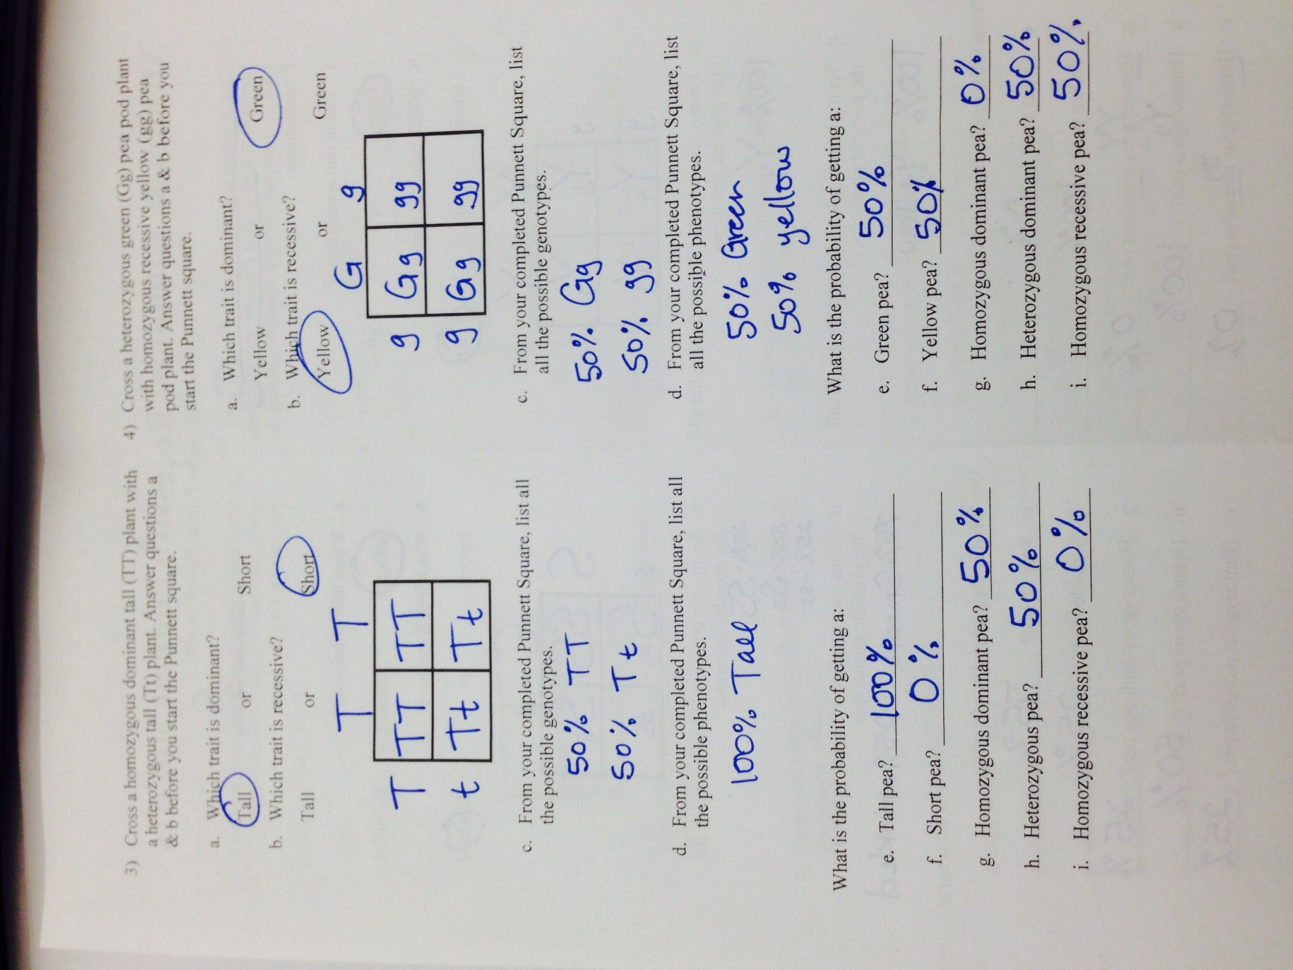 3) Cross a homozygous dominant tall (TT) plant with
a heterozygous tall (Tt) plant. Answer questions a
& b before you start the Punnett square.
a. Which trait is dominant?
Tall or Short
b. Which trait is recessive?
Tall or Short
T T
T TT TT
t Tt Tt
c. From your completed Punnett Square, list all
the possible genotypes.
50% TT
50% Tt
d. From your completed Punnett Square, list all
the possible phenotypes.
100% Tall
What is the probability of getting a:
e. Tall pea? 100%
f. Short pea? 0%
g. Homozygous dominant pea? 50%
h. Heterozygous pea? 50%
i. Homozygous recessive pea? 0%
4) Cross a heterozygous green (Gg) pea pod plant
with homozygous recessive yellow (gg) pea
pod plant. Answer questions a & b before you
start the Punnett square.
a. Which trait is dominant?
Yellow or Green
b. Which trait is recessive?
Yellow or Green
G g
g Gg gg
g Gg gg
c. From your completed Punnett Square, list
all the possible genotypes.
50% Gg
50% gg
d. From your completed Punnett Square, list
all the possible phenotypes.
50% Green
50% yellow
What is the probability of getting a:
e. Green pea? 50%
f. Yellow pea? 50%
g. Homozygous dominant pea? 0%
h. Heterozygous dominant pea? 50%
i. Homozygous recessive pea? 50%